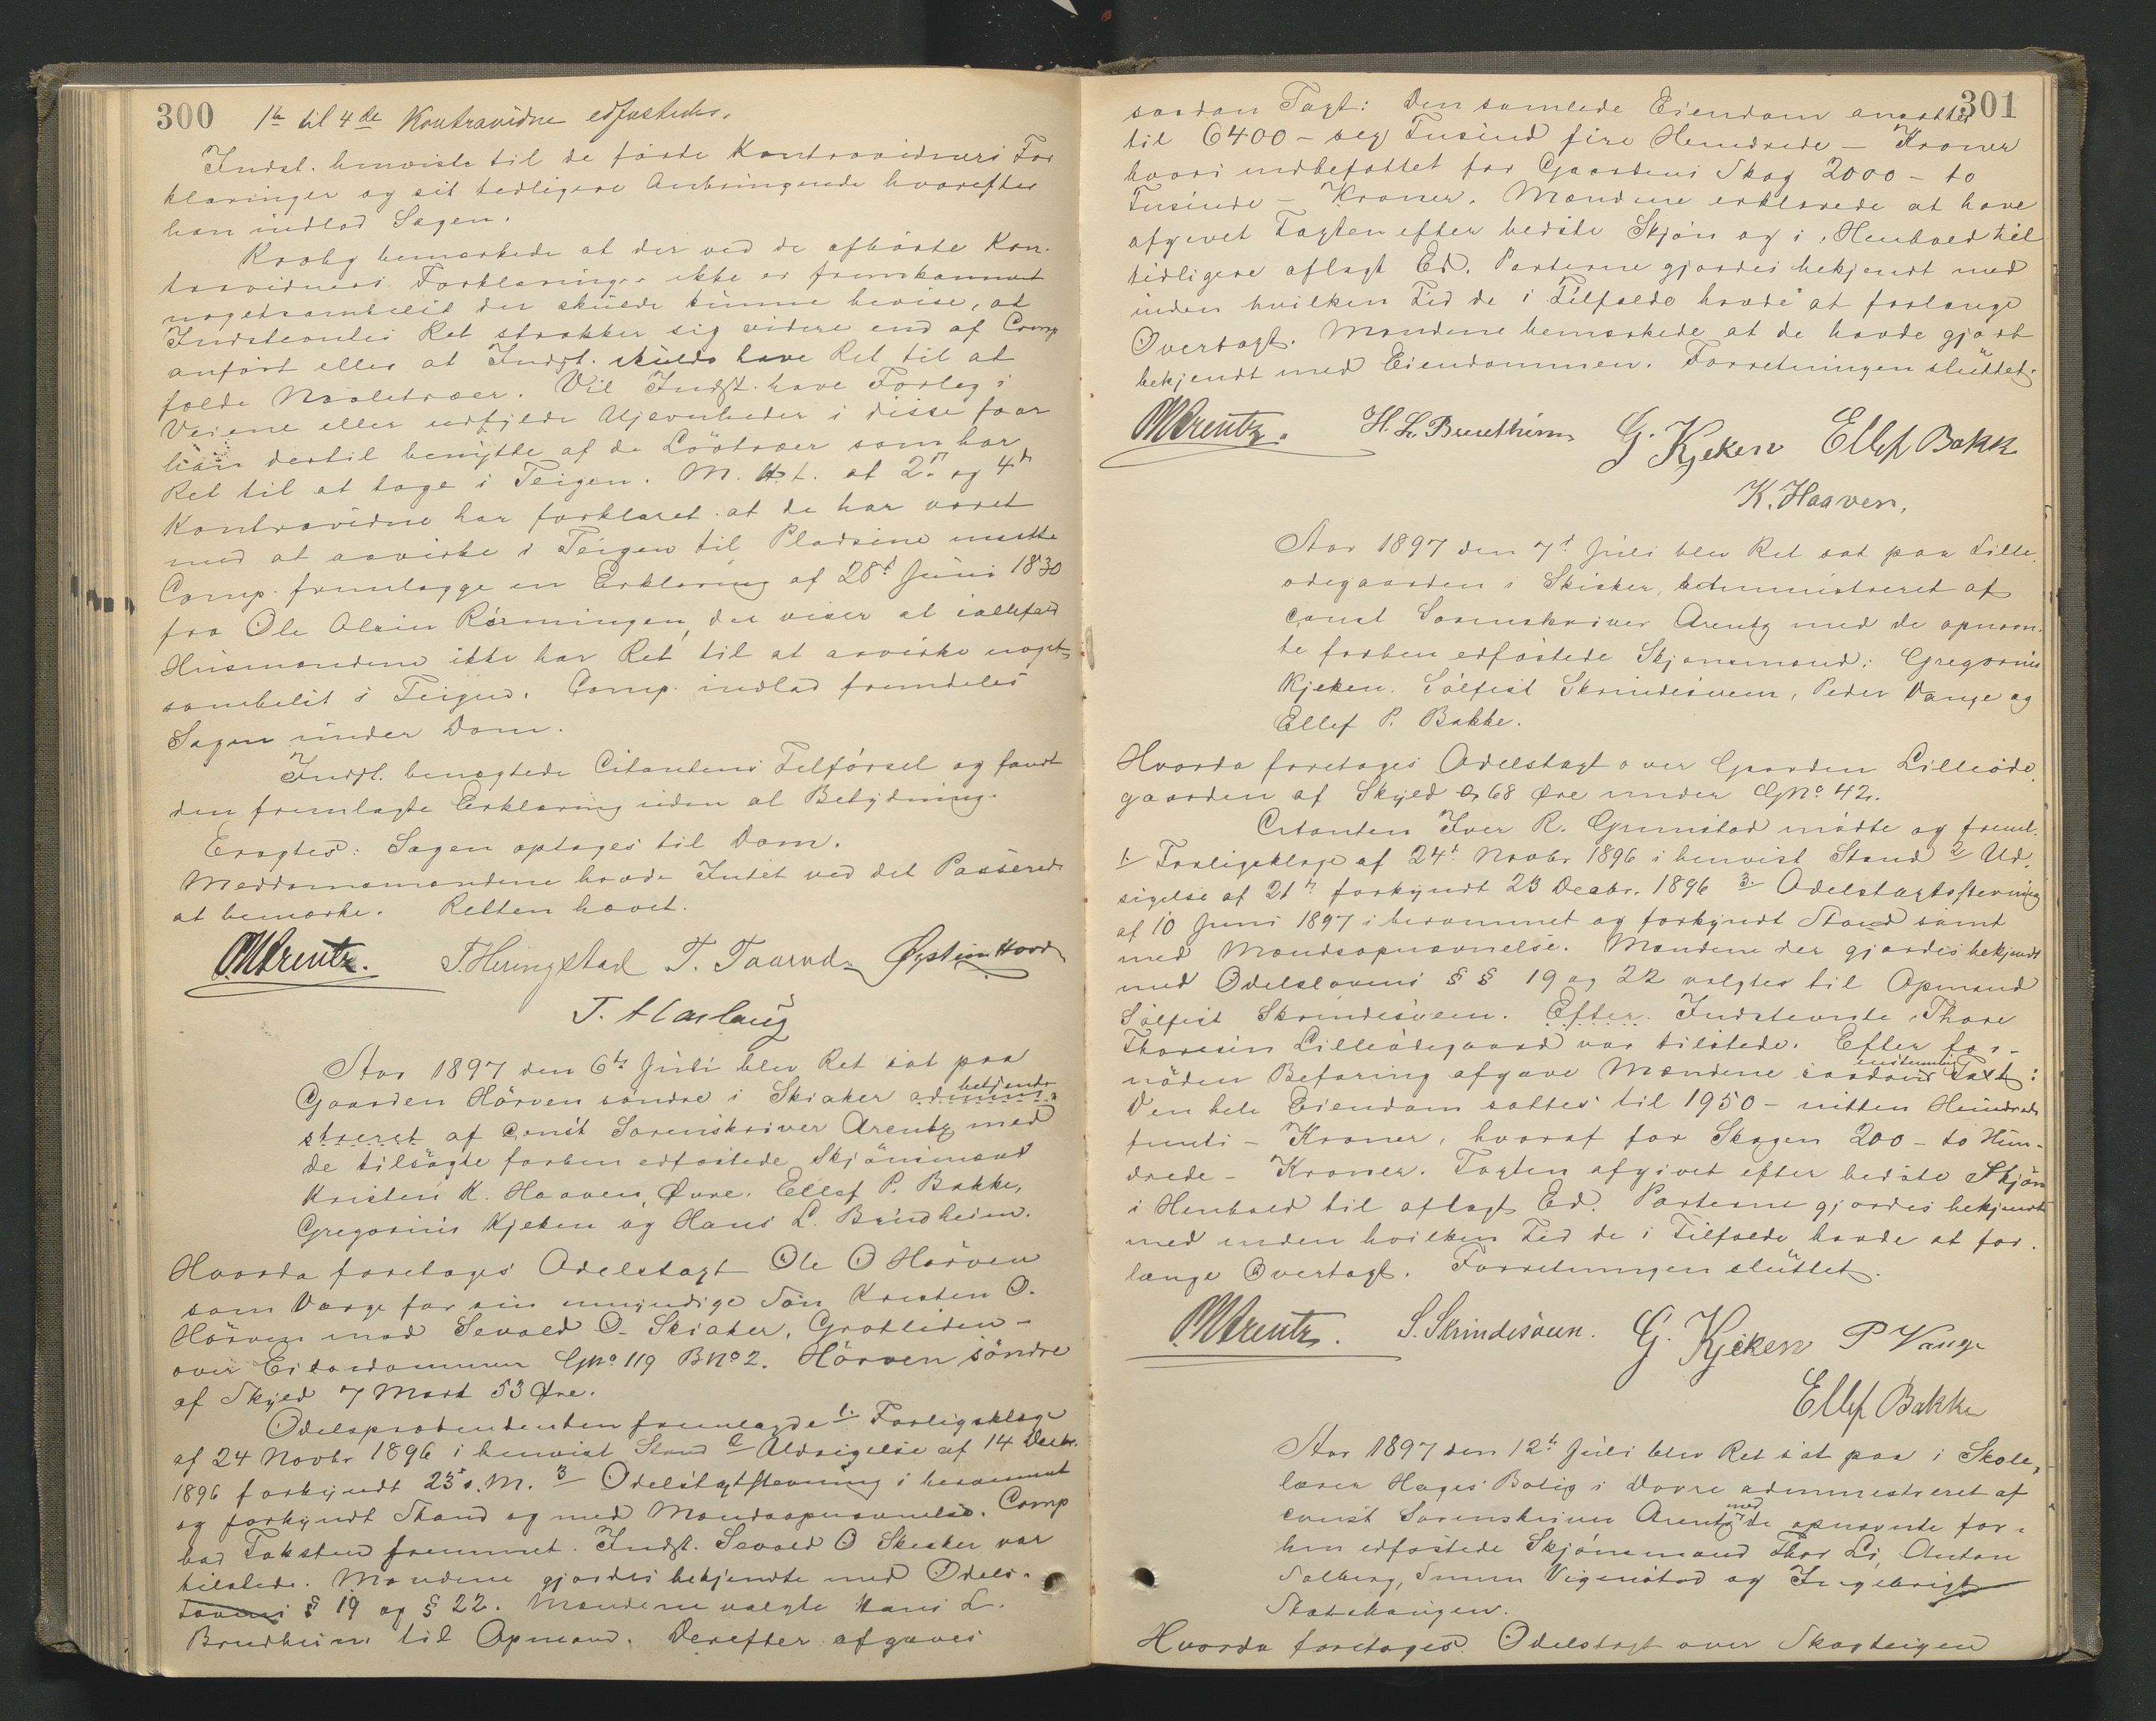 300
1ste til 4de Kontravidne edfæstedes.
Indst. henviste til de førte Kontravidners For
klaringer og sit tidligere Anbringende hvorefter
han indlod Sagen.
Kraby bemærkede at der ved de afhørte Kon-
travidners Forklaringer ikke er fremkommet
nogetsomhelst der skulde kunne bevise, at
Indstevntes Ret strækker sig videre end af Comp
anført eller at Indst. skulde have Ret til at
fælde Naaletræer. Vil Indst. have Forlæg i
Veiene eller udfylde Ujævnheder i disse faar
han dertil benytte af de Løvtræer som har
Ret til at tage i Teigen. M. H. t. at 2den og 4de
Kontravidne har forklaret at de har været
med at aavirke i Teigen til Pladsene maatte
Comp. fremlægge en Erklæring af 28de Juni 1830
fra Ole Olsen Rømmingen, der viser at iallefald
Husmændene ikke har Ret til at aavirke noget
somhelst i Teigen. Comp. indlod fremdeles
Sagen under Dom.
Indst. benægtede Citantens Tilførsel og fandt
den fremlagte Erklæring uden al Betydning.
Eragtes: Sagen optages til Dom.
Meddomsmændene havde Intet ved det Passerede
at bemærke. Retten hævet.
OMArentz. T. Heringstad T. Taarud Øystein Hovde
T. Harlaug
Aar 1897 den 6te Juli blev Ret sat paa
Gaarden Hörven søndre i Skiaker admini-
betjent
streret af const Sorenskriver Arentz med
de tilsagte forhen edfæstede Skjønsmænd
Kristen K. Haaven Øvre. Ellef P. Bakke,
Gregorius Kjeken og Hans L. Brudheim.
Hvorda foretoges Odelstaxt Ole O Hörven
som Værge for sin umyndige Søn Kristen O.
Hörven mod Sevald O. Skiaker, Grotliden –
over Eiendommen GNo 119 BNo 2. Hörven søndre
af Skyld 7 Mark 53 Øre.
Odelsprætendenten fremlagde 1. Forligsklage
af 24 Novbr 1896 i henvist Stand 2 Udsigelse af 14 Decbr.
1896 forkyndt 23de s. M. 3 Odelstaxtstevning i berammet
og forkyndt Stand og med Mændsopnævnelse. Comp
bad Taksten fremmet. Indst. Sevald O Skiaker var
tilstede. Mændene gjordes bekjendte med Odels-
lovens § 19 og § 22. Mændene valgte Hans L.
Brudheim til Opmand. Derefter afgaves
301
saadan Taxt: Den samlede Eiendom ansattes
til 6400 – sex Tusind fire Hundrede – Kroner
hvori indbefattet for Gaardens Skog 2000 – to
Tusinde – Kroner. Mændene erklærede at have
afgivet Taxten efter bedste Skjøn og i Henhold til
tidligere aflagt Ed. Parterne gjordes bekjendt med
inden hvilken Tid de i Tilfælde havde at forlange
Overtaxt. Mændene bemærkede at de havde gjort
bekjendt med Eiendommen. Forretningen sluttet.
OMArentz. H. L. Brudheim G. Kjeken Ellef Bakk
K. Haaven.
Aar 1897 den 7de Juli blev Ret sat paa Lille
ødegaarden i Skiaker, administreret af
const Sorenskriver Arentz med de opnævn-
te forhen edfæstede Skjønsmænd: Gregorius
Kjeken. Sølfest Skrindesveen, Peder Vange og
Ellef P. Bakke.
Hvorda foretoges Odelstaxt over Gaarden Lilleøde
gaarden af Skyld 0,68 Øre under GNo 42.
Citanten Iver R. Grimstad mødte og freml.
1. Forligsklage af 24de Novbr 1896 i henvist Stand 2 Ud-
sigelse af 21de forkyndt 23 Decbr. 1896 3. Odelstaxtstevning
af 10 Juni 1897 i berammet og forkyndt Stand samt
med Mændsopnævnelse. Mændene der gjordes bekjendt
med Odelslovens § § 19 og 22 valgtes til Opmand
Sølfest Skrindesveen. Efter. Indstevnte Thore
Thoresen Lilleødegaard var tilstede. Efter for-
nøden Befaring afgave Mændene saadan Taxt:
enstemmig
Den hele Eiendom sattes til 1950 – nitten Hundrede
femti – Kroner, hvoraf for Skogen 200 – to Hun-
drede – Kroner. Taxten afgivet efter bedste Skjøn
i Henhold til aflagt Ed. Parterne gjordes bekjendt
med inden hvilken Tid de i Tilfælde havde at for-
lange Overtaxt. Forretningen sluttet.
OMArentz. S. Skrindesveen. G. Kjeken P Vange
Ellef Bakke
Aar 1897 den 12te Juli blev Ret sat paa i Skole-
lærer Hages Bolig i Dovre administreret af
const Sorenskriver Arentz med de opnævnte for-
hen edfæstede Skjønsmænd Thor Li, Anton
Solberg, Vigenstad og Ingebrigt
Skatehaugen.
Hvorda foretoges Odelstaxt over Skogteigen